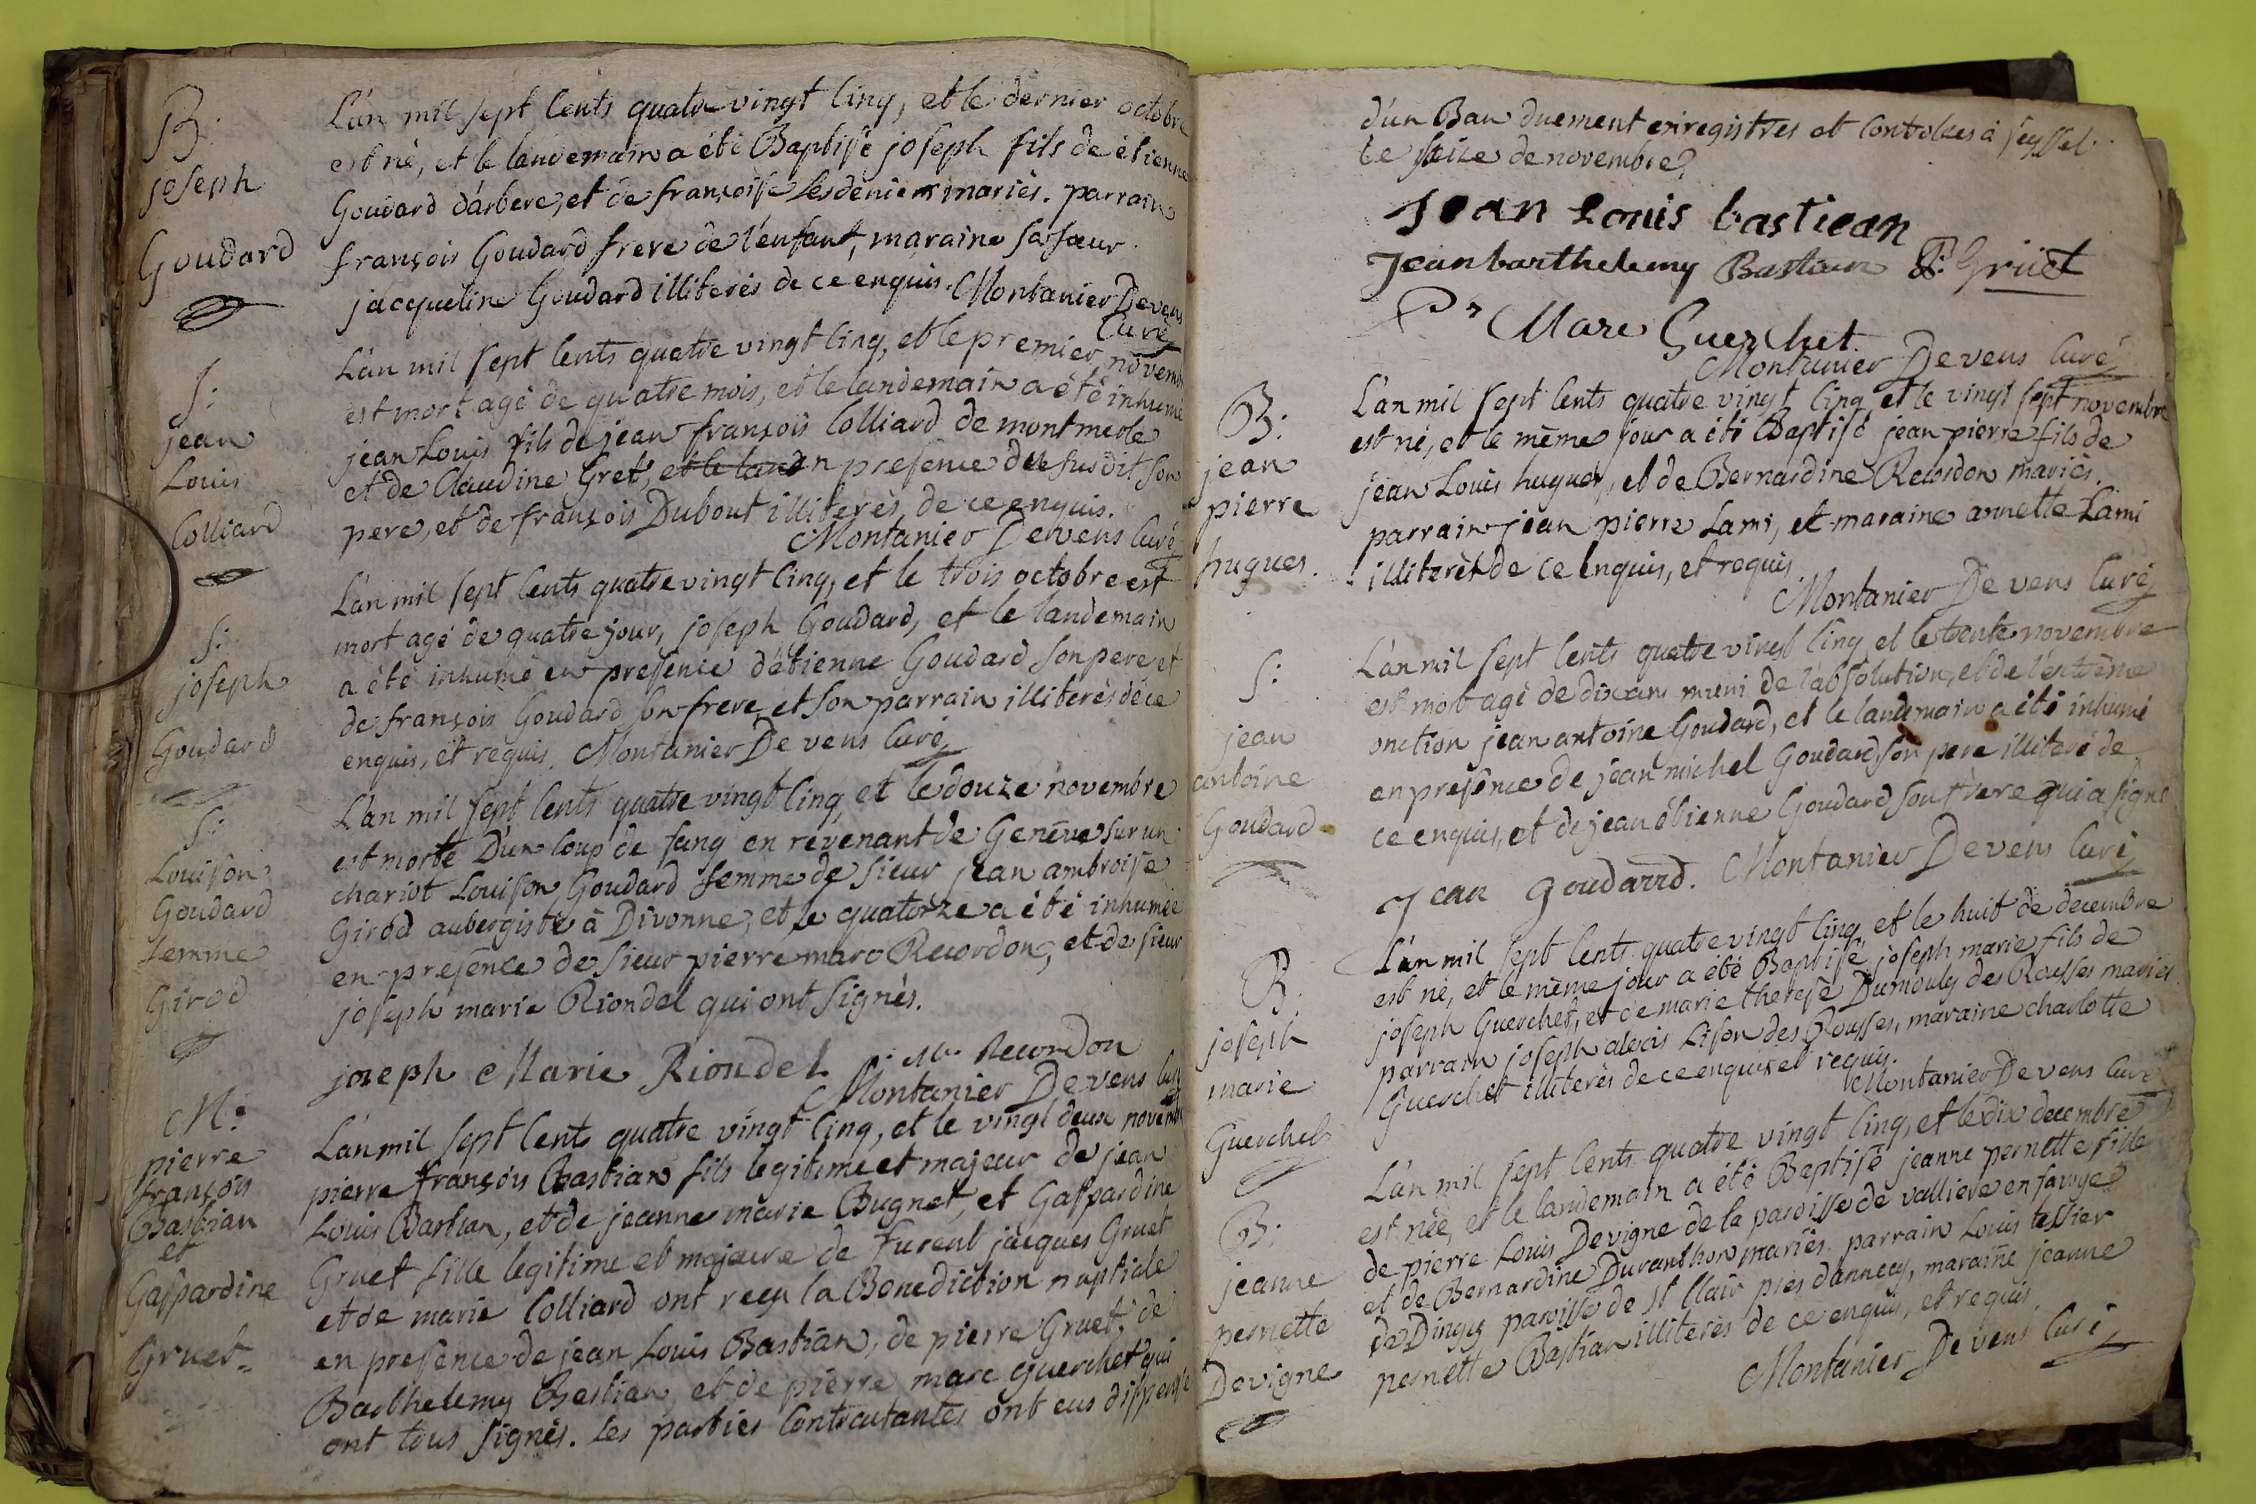 B:
joseph
Goudard
L'an mil sept cents quatre vingt cinq, et le dernier octobre
est né, et le landemain a été Baptisé joseph fils de étienne
Goudard d'arbere, et de françoise mariés. parrain
françois Goudard frere de l'enfant, maraine sa sœur
jacqueline Goudard illiterés de ce enquis. Montanier Devens
Curé
S:
jean
Louis
Colliard
L'an mil sept cents quatre vingt cinq, et le premier novembre
est mort agé de quatre mois, et le landemain a été inhumé
jean Louis fils de jean françois Colliard de
et de Claudine Gret, et le land n presence du susdit son
pere, et de françois Dubout illiterés, de ce enquis.
Montanier Devens Curé
S:
joseph
Goudard
L'an mil sept cents quatre vingt cinq, et le trois octobre est
mort agé de quatre jour, joseph Goudard, et le landemain
a été inhumé en presence d'étienne Goudard son pere et
de françois Goudard son frere et son parrain illiterés de ce
enquis, et requis. Montanier Devens Curé
S:
Louison
Goudard
femme
Girod
L'an mil sept cents quatre vingt cinq, et le douze novembre
est morte D'un coup de sang en revenant de Genève sur un
chariot Louison Goudard femme de sieur jean ambroise
Girod aubergiste à Divonne, et le quatorze a été inhumée
en presence de sieur pierre marc Recordon, et de sieur
joseph marie Riondel qui ont signés.
joseph Marie Riondel P. Mc. Recordon
Montanier Devens Curé
M:
pierre
françois
Bastian
et
Gaspardine
Gruet
L'an mil sept cents quatre vingt cinq, et le vingt deux novembre
pierre françois Bastian fils legitime et majeur de jean
Louis Bastian, et de jeanne marie Bugnet, et Gaspardine
Gruet fille legitime et majeure de furent jacques Gruet
et de marie Colliard ont reçu la Benediction nuptiale
en presence de jean Louis Bastian, de pierre Gruet, de
Barthelemy Bastian, et de pierre marc Guerchet qui
ont tous signés. Les parties contractantes ont eus dispense
d'un Ban duement enregistres et controlees à seyssel
le seize de novembre
Jean Louis bastiean
Jean barthelemy Bastian P: Grüet
Pre Marc Guerchet
Montanier Devens Curé
B:
jean
pierre
hugues.
L'an mil sept cents quatre vingt cinq, et le vingt sept novembre
est né, et le même jour a été Baptisé jean pierre fils de
jean Louis hugues, et de Bernardine Recordon mariés.
parrain jean pierre Lami, et maraine annette Lami
illiterés de ce enquis, et requis
Montanier Devens Curé
S:
jean
antoine
Goudard
L'an mil sept cents quatre vingt cinq, et le trente novembre
est mort agé de dix ans muni de l'absolution, et de l'extrême
onction jean antoine Goudard, et le landemain a été inhumé
en presence de jean michel Goudard son pere illiteré de
ce enquis, et de jean étienne Goudard son frere qui a signé
Jean goudarrd. Montanier Devens Curé
B.
joseph
marie
Guerchet
L'an mil sept cents quatre vingt cinq, et le huit de decembre
est né, et le même jour a été Baptisé joseph marie fils de
joseph Guerchet, et de marie therese Dumouly des Rousses mariés
parrain joseph alexis Lison des Rousses, maraine charlotte
Guerchet illiterés de ce enquis et requis.
Montanier Devens Curé
B:
jeanne
pernette
Devigne
L'an mil sept cents quatre vingt cinq, et le dix decembre
est née, et le landemain a été Baptisé jeanne pernette fille
de pierre Louis Devigne de la paroisse de valliere en savoye
et de Bernardine Duranthon mariés. parrain Louis tessier
de Dingy paroisse de st Clair pres d'annecy, maraine jeanne
pernette Bastian illiterés de ce enquis, et requis.
Montanier Devens Curé